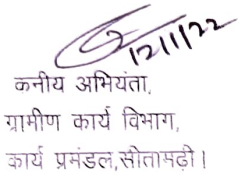 12/1/22
कनीय अभियंता,
ग्रामीण कार्य विभाग,
कार्य प्रमंडल,सीतामढ़ी।